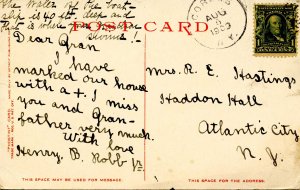 The water by the boat-
slip is 40 ft. deep and
that is where
swims!
POST CARD
Dear Gran.
I have
marked our house
with a +. I miss
you and Gran-
father very much.
With love
Henry. B. Robb Jr.
AUG
N.Y.
Mrs. R. E. Hastings
Haddon Hall
Atlantic City
N. J.
THIS SPACE MAY BE USED FOR MESSAGE.
THIS SPACE FOR ADDRESS ONLY.